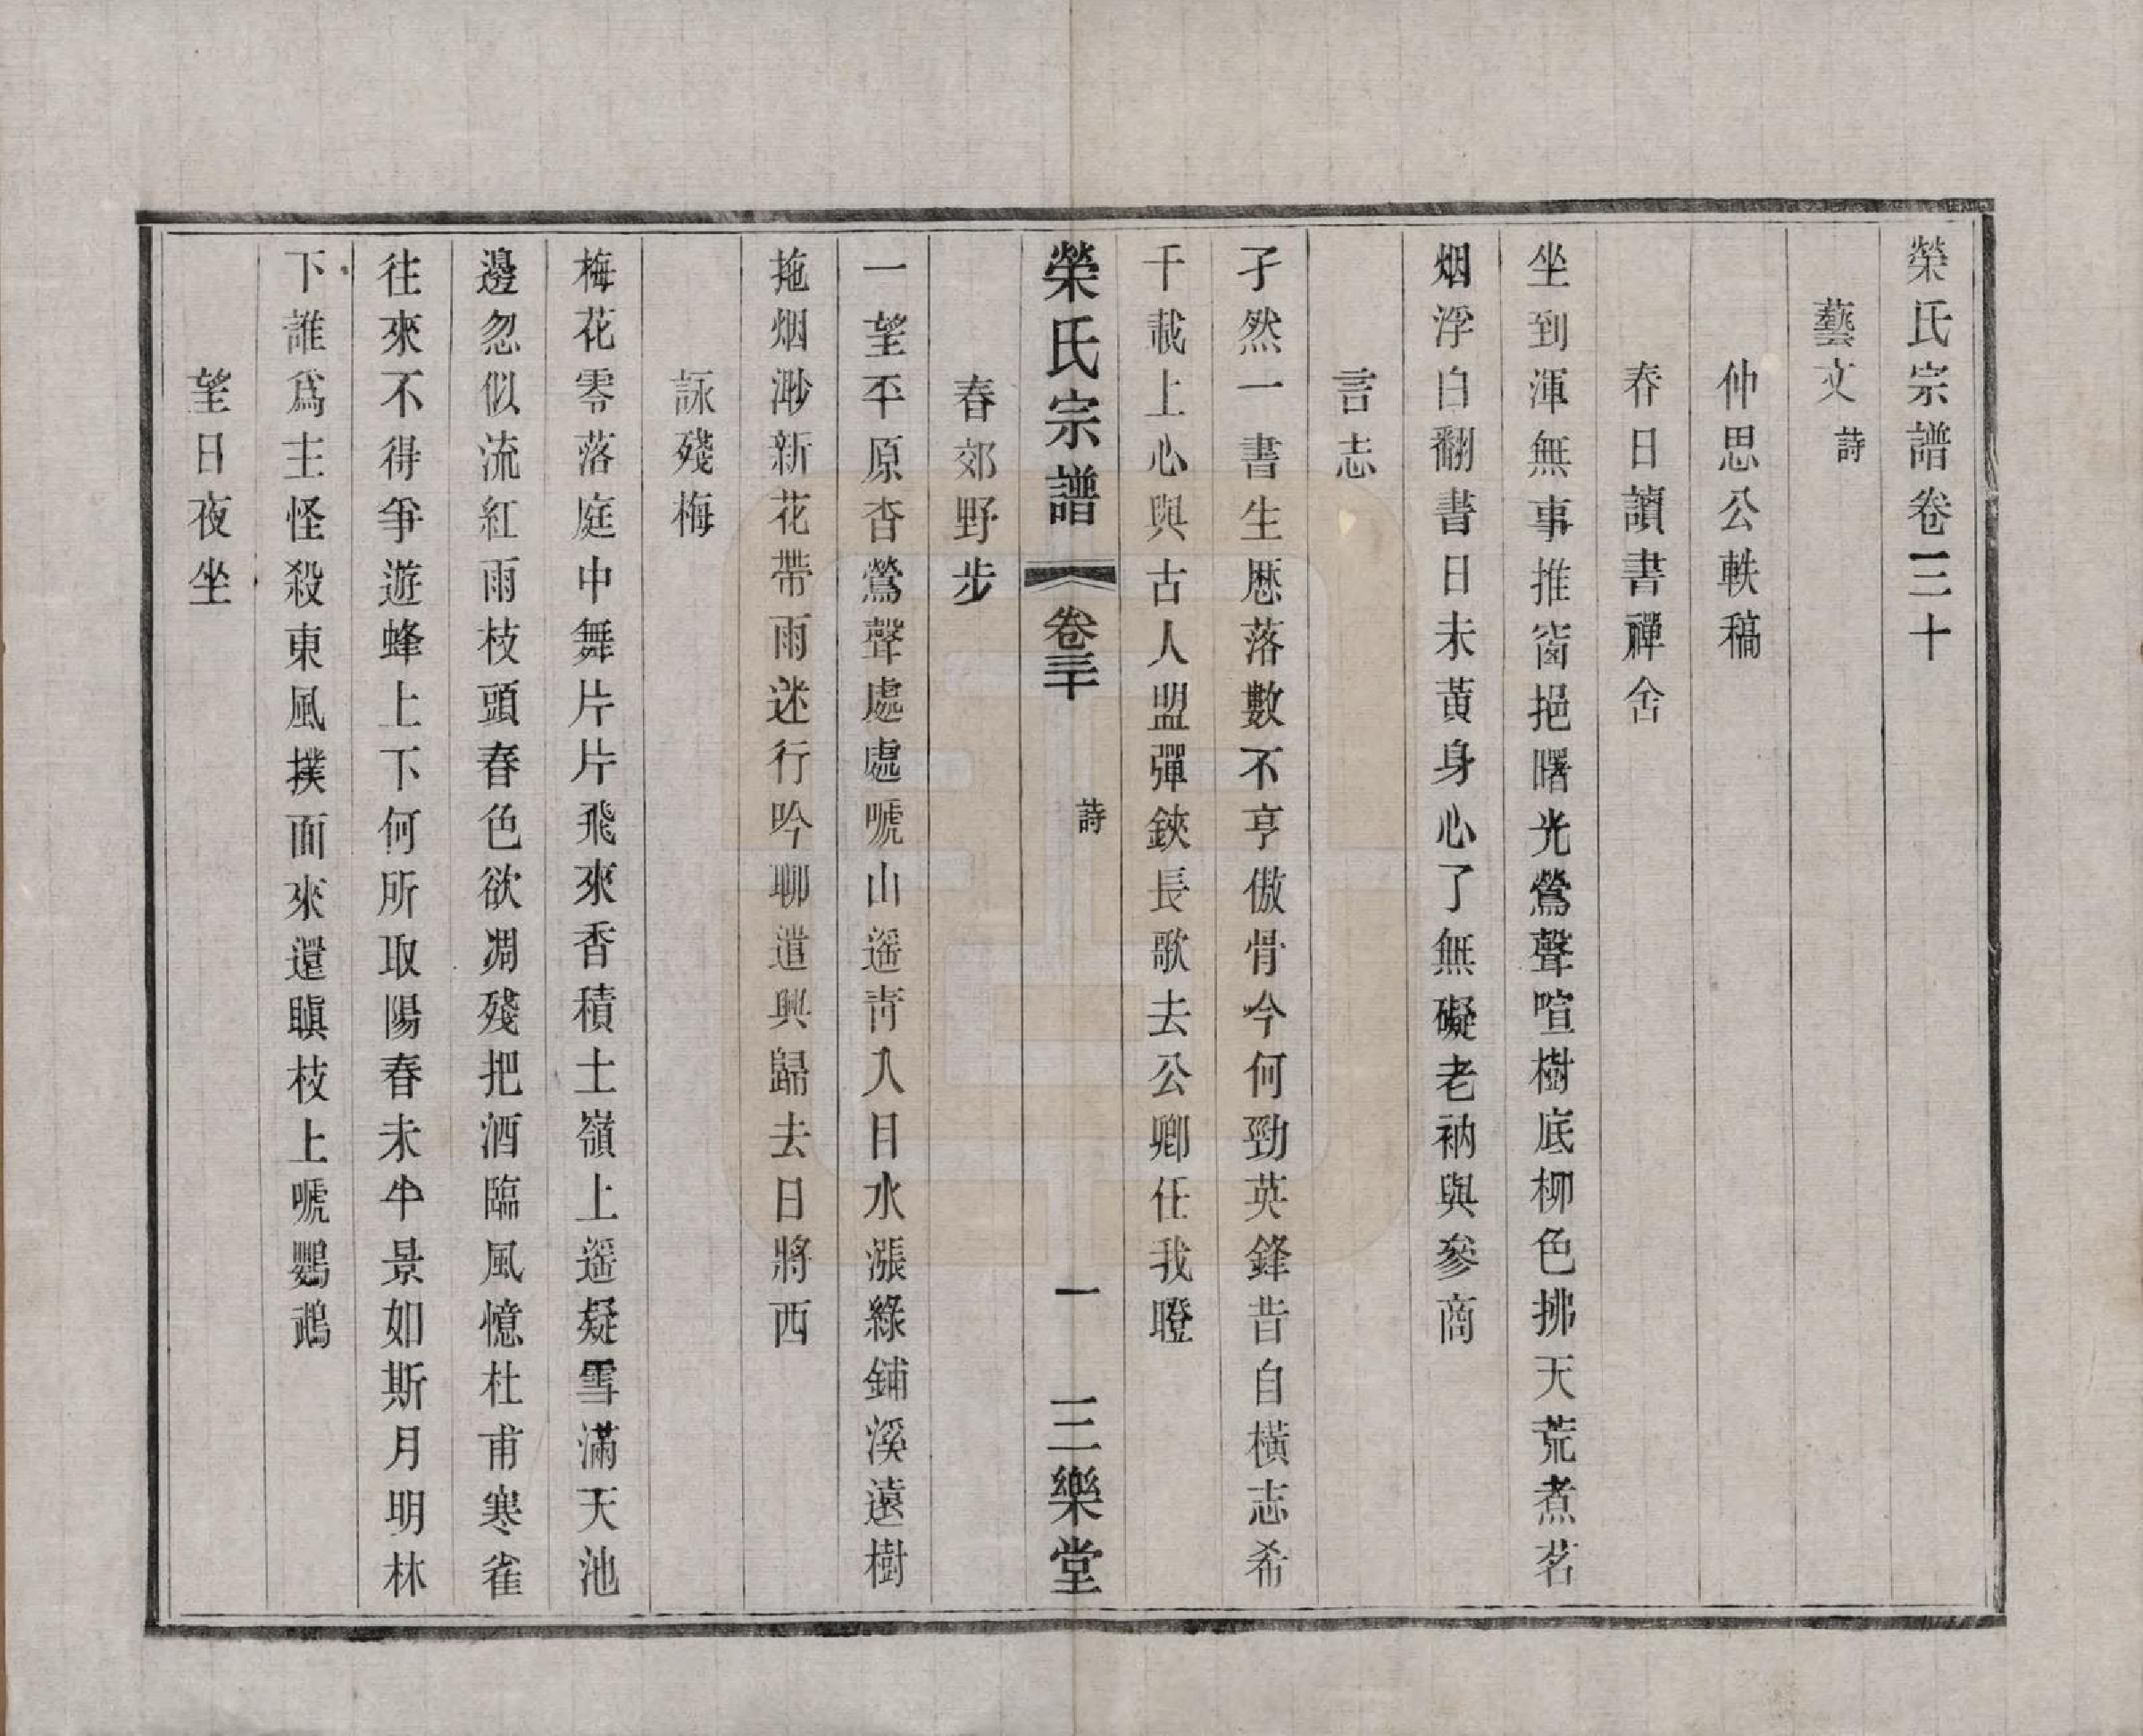 榮氏宗譜卷三十
藝文 詩
仲思公軼稿
春日讀書禪舍
坐到渾無事推窗挹曙光鶯聲喧樹底柳色拂天荒煮茗
烟浮白翻書日未黃身心了無礙老衲與參商
言志
孑然一書生歷落數不亨傲骨今何勁英鋒昔自橫志希
千載上心與古人盟彈鋏長歌去公卿任我瞪
榮氏宗譜 卷三十 詩 一 三樂堂
春郊野步
一望平原杳鶯聲處處嗁山遥青入目水漲綠鋪溪遠樹
拖烟渺新花帶雨迷行吟聊遣興歸去日將西
詠殘梅
梅花零落庭中舞片片飛來香積土嶺上遥疑雪滿天池
邊忽似流紅雨枝頭春色欲凋殘把酒臨風憶杜甫寒雀
往來不得爭遊蜂上下何所取陽春未半景如斯月明林
下誰爲主怪殺東風撲面來還瞋枝上嗁鸚鵡
望日夜坐